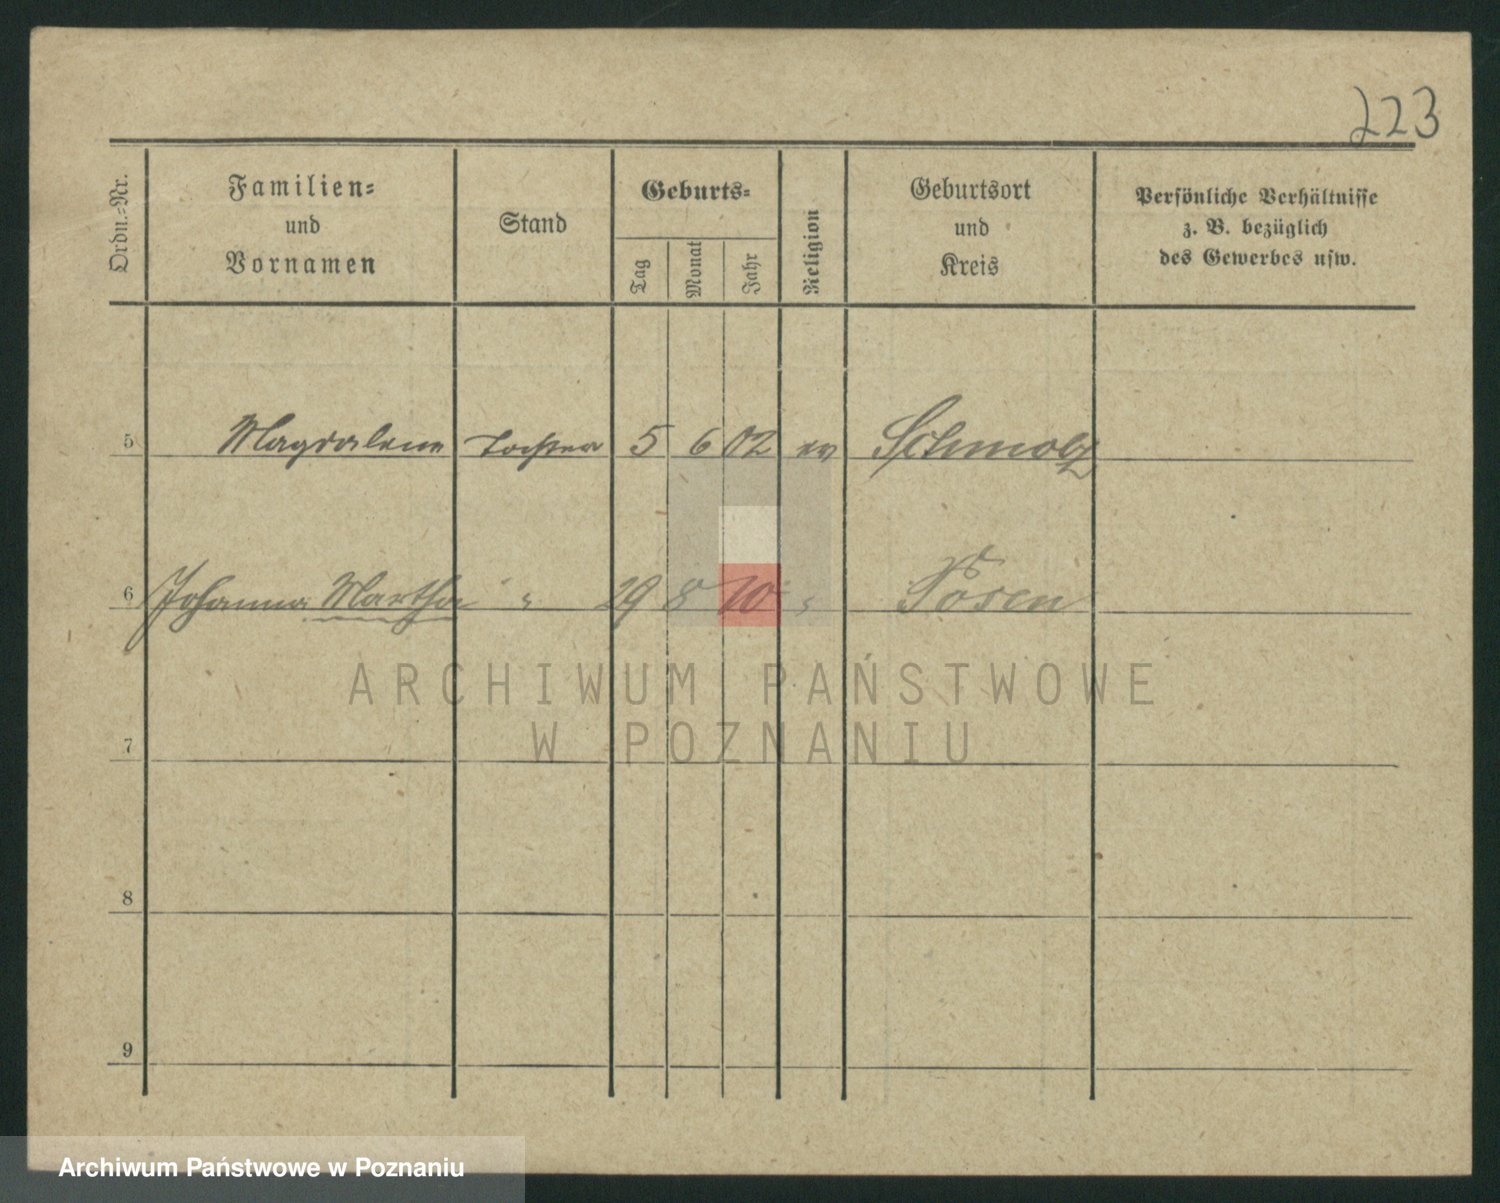 223
Ordn.-Nr.
Familien-
und
Vornamen
Stand
Geburts-
Tag
Monat
Jahr
Religion
Geburtsort
und
Kreis
Persönliche Verhältnisse
z. B. bezüglich
des Gewerbes usw.
5 Magdalene Tochter 5 6 02 ev Schmolz
6 Johanna Martha " 29 8 10 " Posen
ARCHIWUM PAŃSTWOWE
W POZNANIU
7
8
9
Archiwum Państwowe w Poznaniu